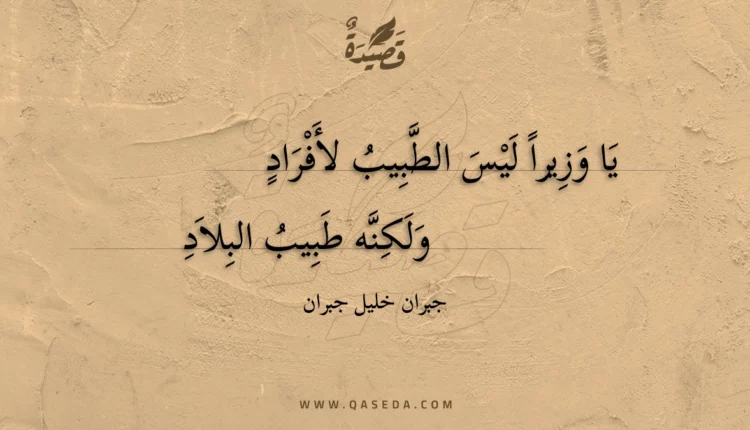 قَصِيْدَةٌ
يَا وَزِيراً لَيْسَ الطَّبِيبُ لأَفْرَادٍ
وَلَكِنَّه طَبِيبُ البِلاَدِ
جبران خليل جبران
WWW.QASEDA.COM